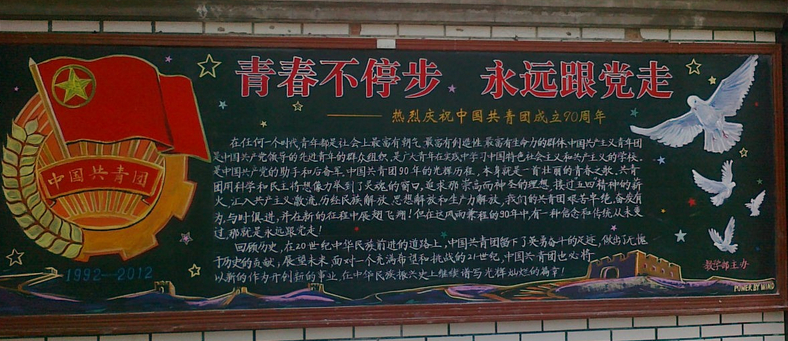 青春不停步 永远跟党走
——热烈庆祝中国共青团成立90周年
中国共青团
1992-2012
在任何一个时代青年都是社会上最富有朝气、最富有创造性、最富有生命力的群体。中国共产主义青年团
是中国共产党领导的先进青年的群众组织,是广大青年在实践中学习中国特色社会主义和共产主义的学校,
是中国共产党的助手和后备军。中国共青团90年的光辉历程,本身就是一首壮丽的青春之歌,共青
团用科学和民主将想像力牵到了灵魂的窗口,追求那崇高而神圣的理想,接过五四精神的薪
火,汇入共产主义激流,历经民族解放、思想解放和生产力解放,我们的共青团艰苦卓绝,奋发有
为,与时俱进,并在新的征程中展翅飞翔!但在这风雨兼程的90年中,有一种信念和传统从未变
过,那就是永远跟党走!
回顾历史,在20世纪中华民族前进的道路上,中国共青团留下了英勇奋斗的足迹,做出了无愧
于历史的贡献,展望未来,面对一个充满希望和挑战的21世纪,中国共青团也必将
以新的作为开创新的事业,在中华民族振兴史上继续谱写光辉灿烂的篇章!
教学部主办
POWER BY MIND